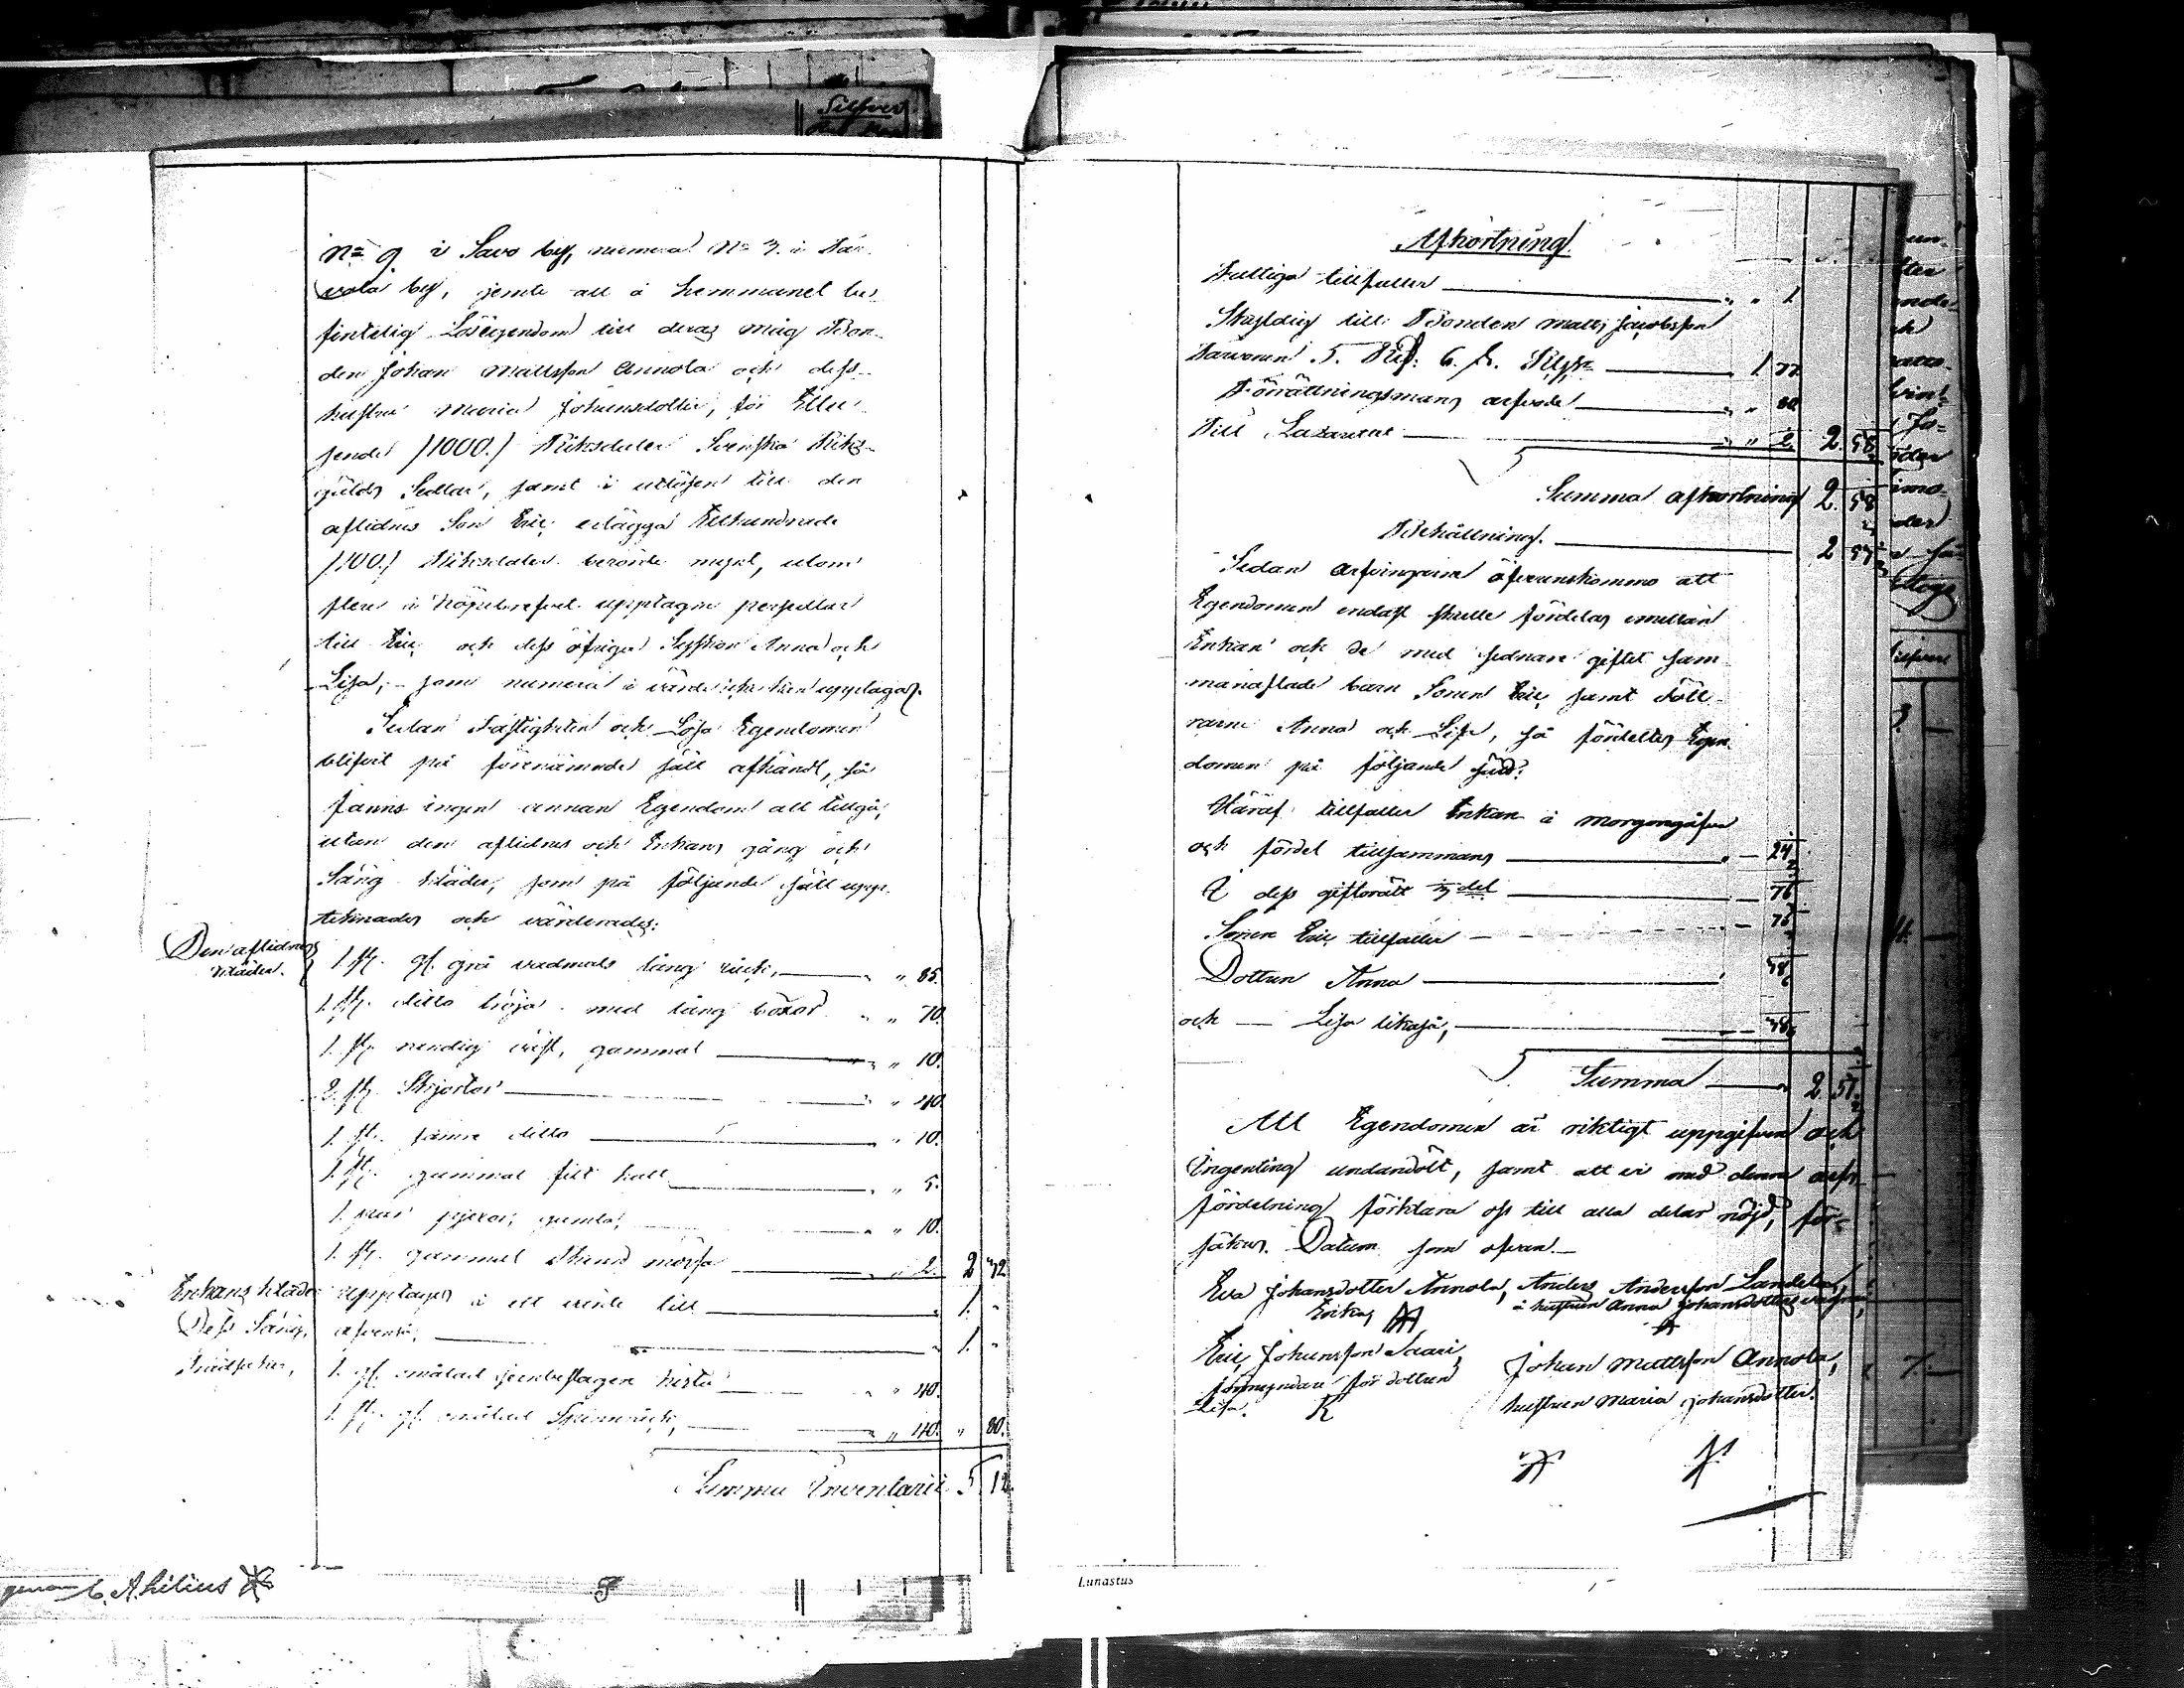 Silfver
N= 9 i Savo by, numera N= 3. i Tar
vola by, jemte all å hemmanet be
fintelig Lösegendom till deras måg Bon
den Johan Mattsson Annola och dess
hustru Maria Johansdotter, för Ettu
sende /1000./ Riksdaler Svenska Riks
gälds Sedlar, samt i utlösen till den
aflidnes Son Eric erlägga Etthundrade
/100./ Riksdaler berörde mynt, utom
flere i köpebrefvet upptagne persedlar
till Eric och dess öfriga Syskon Anna och
Lisa, som numera i värde icke kan upptagas.
Sedan Fastigheten och Lösa Egendomen
blifvit på förenämnde sätt afhändt, så
fanns ingen annan Egendom att tillgå,
utan den aflidnes och Enkans gång och
Säng kläder, som på följande sätt upp
teknades och värderades:
Den aflidnes
kläder.
1 st. gl. grå vadmals lång rock, " 85.
1. st. ditto tröja med lång böxor " " 70.
1. st. randig väst, gammal " " 10.
2. st. Skjortor " 40.
1. st. sämre ditto " 10.
1. st. gammal filt hatt " " 5.
1. par pjexor, gamla, " " 10.
1. st. gammal skind mössa " 2. 2 32
Enkans kläder upptages i ett värde till 1. -
Dess Säng, afvenså, 1. -
Trädsaker, 1. gl. målad jernbeslagen kista " 40.
1. st. gl. målad Spinnrock, " 40. " 80.
Summa Inventarii 5 12
C. A. Hilius
Afkortning
Fattiga tillfaller " " 1
Skyldig till Bonden Matts Jacobsson
Tarvonen 5. Rub. 6. k. Silfver 1 77
Förrättningsmans arfvode " " 80
Till Lazarettet " " 2 2. 58
Summa afkortning 2. 58
Behållning. 2 57
Sedan arfvingarne öfverenskommo att
Egendomen endast skulle fördelas emellan
Enkan och de med sednare giftet sam
manaflade barn Sonen Eric samt Dött
rarne Anna och Lisa, så fördeltes Egen
domen på följande sätt:
Häraf tillfaller Enkan i morgongåfva
och fördel tillsammans 24
I dess giftorätt 1/3 del 76
Sonen Eric tillfaller 76
Dottren Anna 38
och Lisa likaså, 38
Summa 2 57
Att Egendomen är riktigt uppgifven och
ingenting undandölt, samt att vi med denna arfs
fördelning förklara oss till alla delar nöjd, för
säkras. Datum som ofvan.
Eva Johansdotter Annola, Anders Andersson Landela,
Enka, å hustrun Anna Johansdotters vägnar
Eric Johansson Saari, Johan Mattsson Annola,
förmyndare för dottren hustrun Maria Johansdotter.
Lisa. K
Lunastus